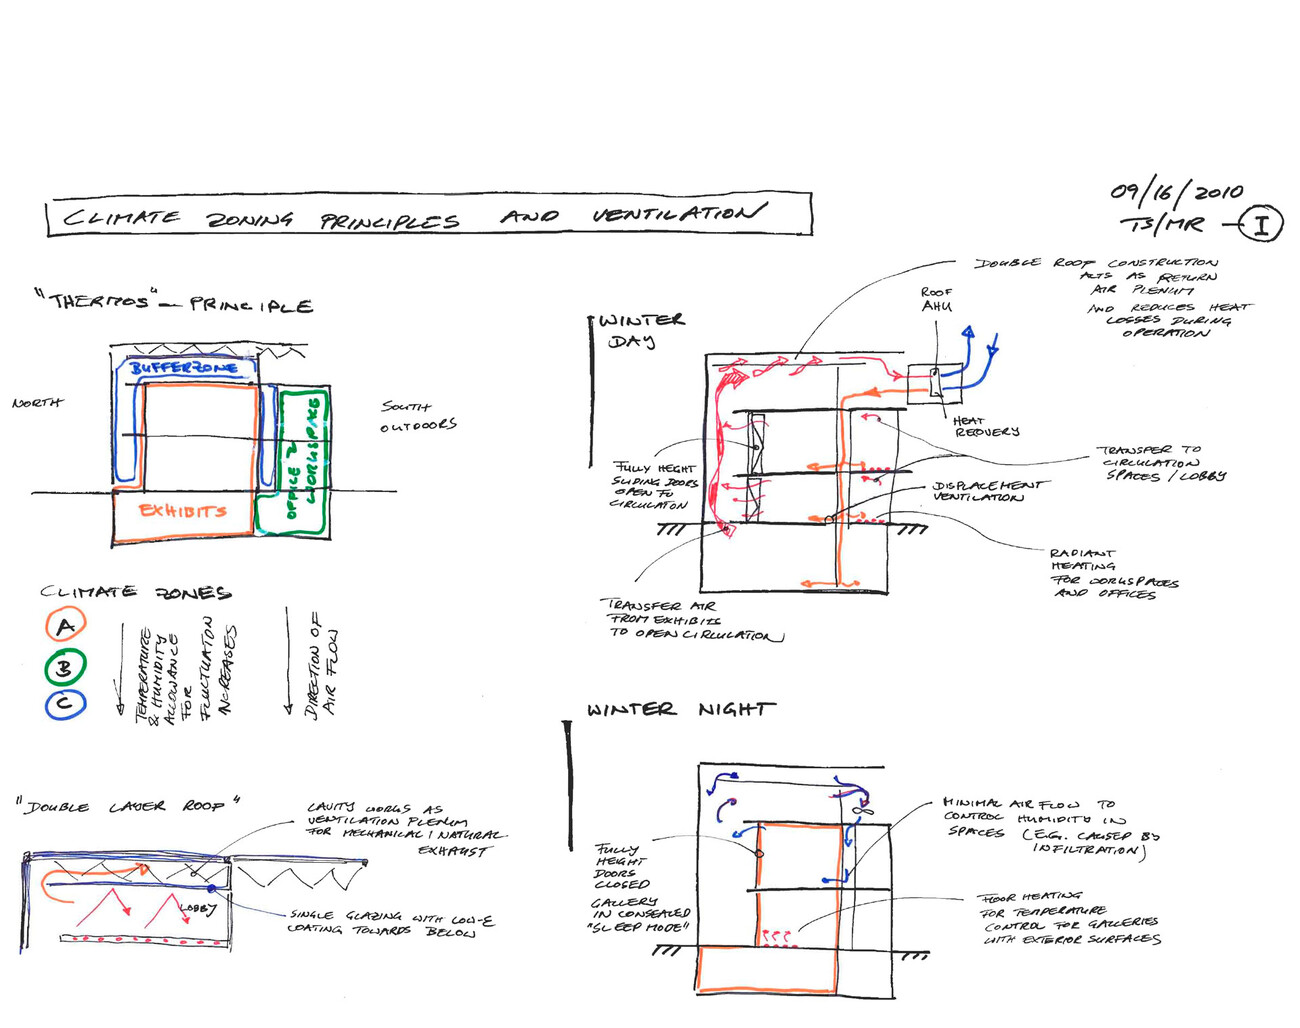 CLIMATE ZONING PRINCIPLES AND VENTILATION
09/16/2010
TS/MR - I
"THERMOS" - PRINCIPLE
BUFFERZONE
NORTH
SOUTH
OUTDOORS
OFFICE &
WORKSPACE
EXHIBITS
CLIMATE ZONES
A
B
C
TEMPERATURE
& HUMIDITY
ALLOWANCE
FOR
FLUCTUATION
INCREASES
DIRECTION OF
AIR FLOW
"DOUBLE LAYER ROOF"
CAVITY WORKS AS
VENTILATION PLENUM
FOR MECHANICAL / NATURAL
EXHAUST
LOBBY
SINGLE GLAZING WITH LOW-E
COATING TOWARDS BELOW
WINTER
DAY
DOUBLE ROOF CONSTRUCTION
ACTS AS RETURN
AIR PLENUM
AND REDUCES HEAT
LOSSES DURING
OPERATION
ROOF
AHU
HEAT
RECOVERY
FULLY HEIGHT
SLIDING DOORS
OPEN TO
CIRCULATON
TRANSFER TO
CIRCULATION
SPACES / LOBBY
DISPLACEMENT
VENTILATION
RADIANT
HEATING
FOR WORKSPACES
AND OFFICES
TRANSFER AIR
FROM EXHIBITS
TO OPEN CIRCULATION
WINTER NIGHT
MINIMAL AIR FLOW TO
CONTROL HUMIDITY IN
SPACES (E.G. CAUSED BY
INFILTRATION)
FULLY
HEIGHT
DOORS
CLOSED
GALLERY
IN CONSEALED
"SLEEP MODE"
FLOOR HEATING
FOR TEMPERATURE
CONTROL FOR GALLERIES
WITH EXTERIOR SURFACES